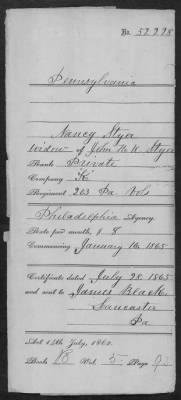 No. 52,228
Pennsylvania
Nancy Styer
widow of John H. W. Styer
Rank Private
Company "K"
Regiment 203 Pa Vols
Philadelphia Agency.
Rate per month, $. 8
Commencing January 16, 1865
Certificate dated July 28 1865
and sent to James Black,
Lancaster
Pa.
Act 14th July, 1862.
Book 18 Vol. 5. Page